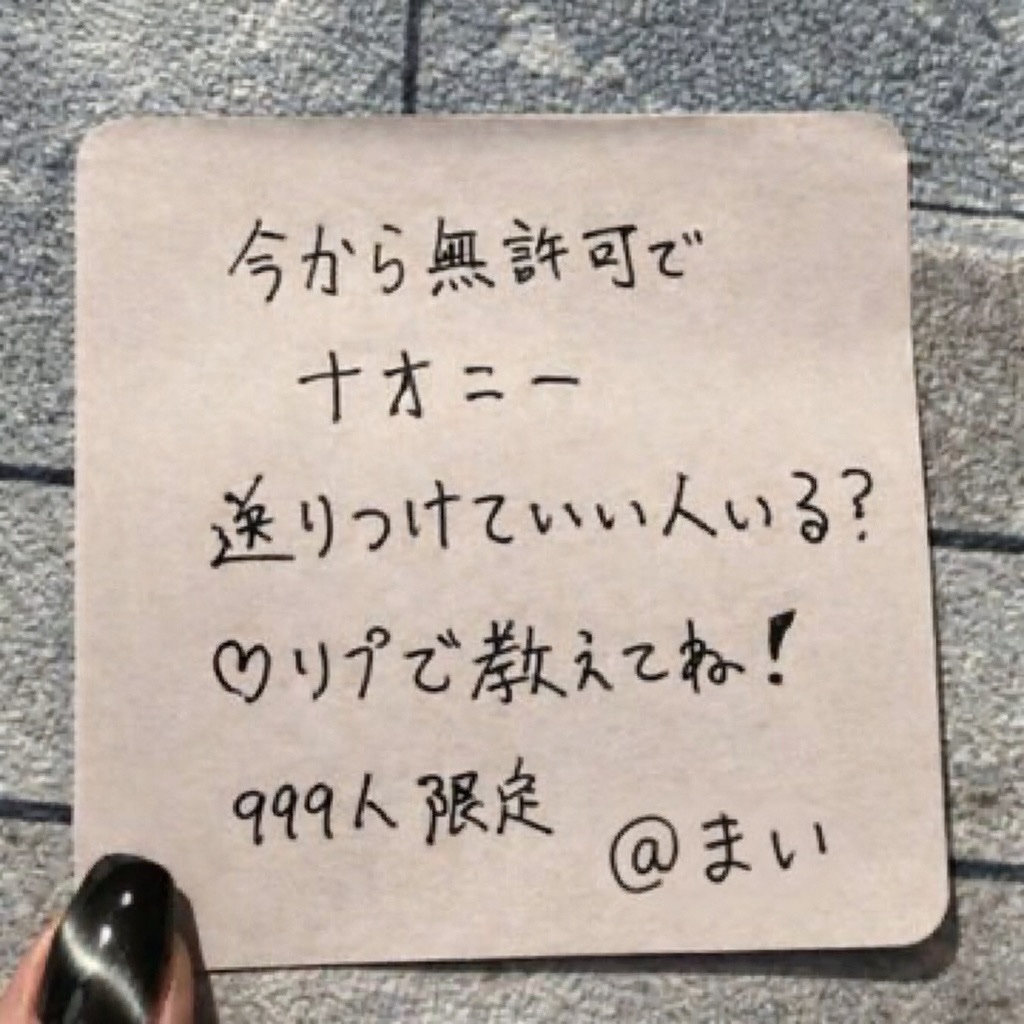 今から無許可で
ナオニー
送りつけていい人いる?
♡リプで教えてね!
999人限定
@まい